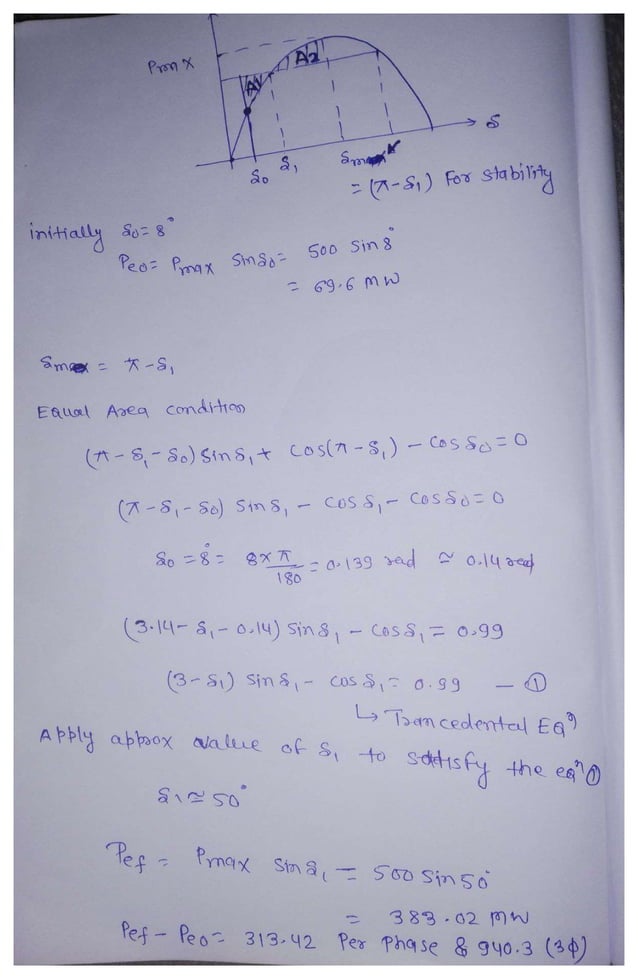 Pmax
A1
A2
δ
δ0
δ1
δmax
= (π-δ1) For stability
initially δ0= 8°
Peo= Pmax Sinδ0= 500 Sin 8°
= 69.6 MW
δmax = π-δ1
Equal Area condition
(π-δ1-δ0) Sinδ1 + Cos(π-δ1) - Cosδ0=0
(π-δ1-δ0) Sinδ1 - Cosδ1 - Cosδ0=0
δ0 = 8° = 8×π/180 = 0.139 rad ≃ 0.14 rad
(3.14-δ1-0.14) Sinδ1 - Cosδ1 = 0.99
(3-δ1) Sinδ1 - Cosδ1 = 0.99 — ①
↳ Trancedental Eqⁿ
Apply approx value of δ1 to satisfy the eqⁿ ①
δ1 ≃ 50°
Pef = Pmax Sinδ1 = 500 Sin 50°
= 383.02 MW
Pef - Peo = 313.42 Per Phase & 940.3 (3ϕ)